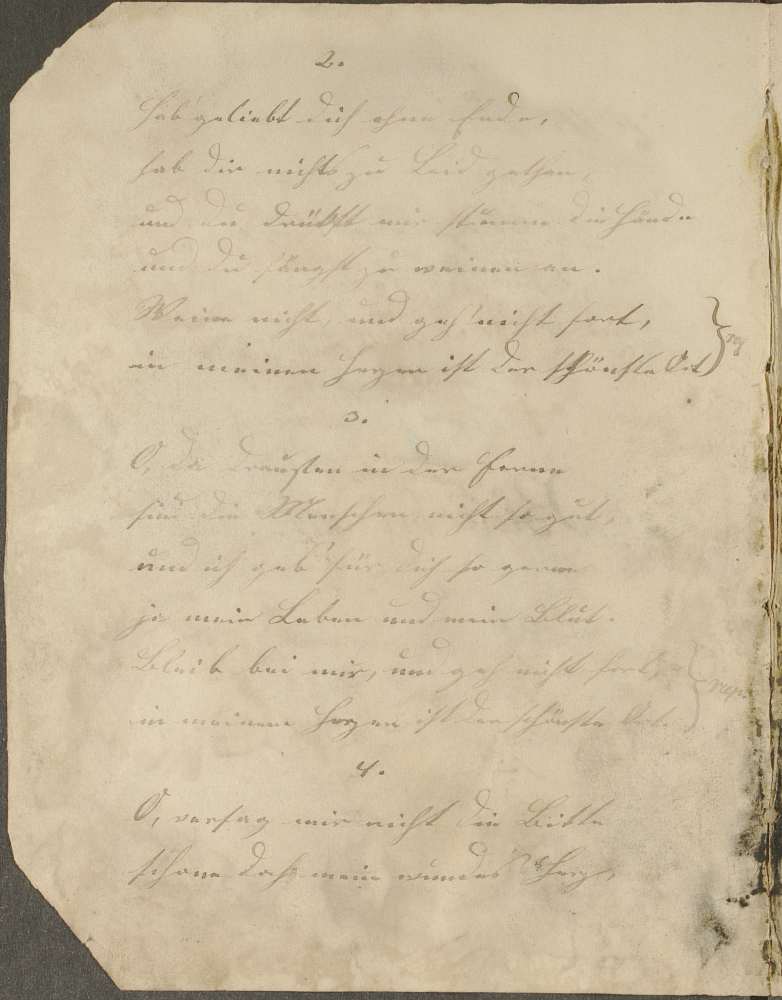 2.
Hab' geliebt dich ohne Ende,
hab dir nichts zu Leid gethan,
und du drückst mir stumm die Hände
und du fängst zu weinen an.
Weine nicht, und geh' nicht fort,
in meinen Herzen ist der schönste Ort
3.
O, da draußen in der Ferne
sind die Menschen nicht so gut,
und ich geb' für dich so gerne
ja mein Leben und mein Blut.
Bleib bei mir, und geh nicht fort,
in meinem Herzen ist der schönste Ort.
rep.
4.
O, versag mir nicht die Bitte
schone doch mein wundes Herz,